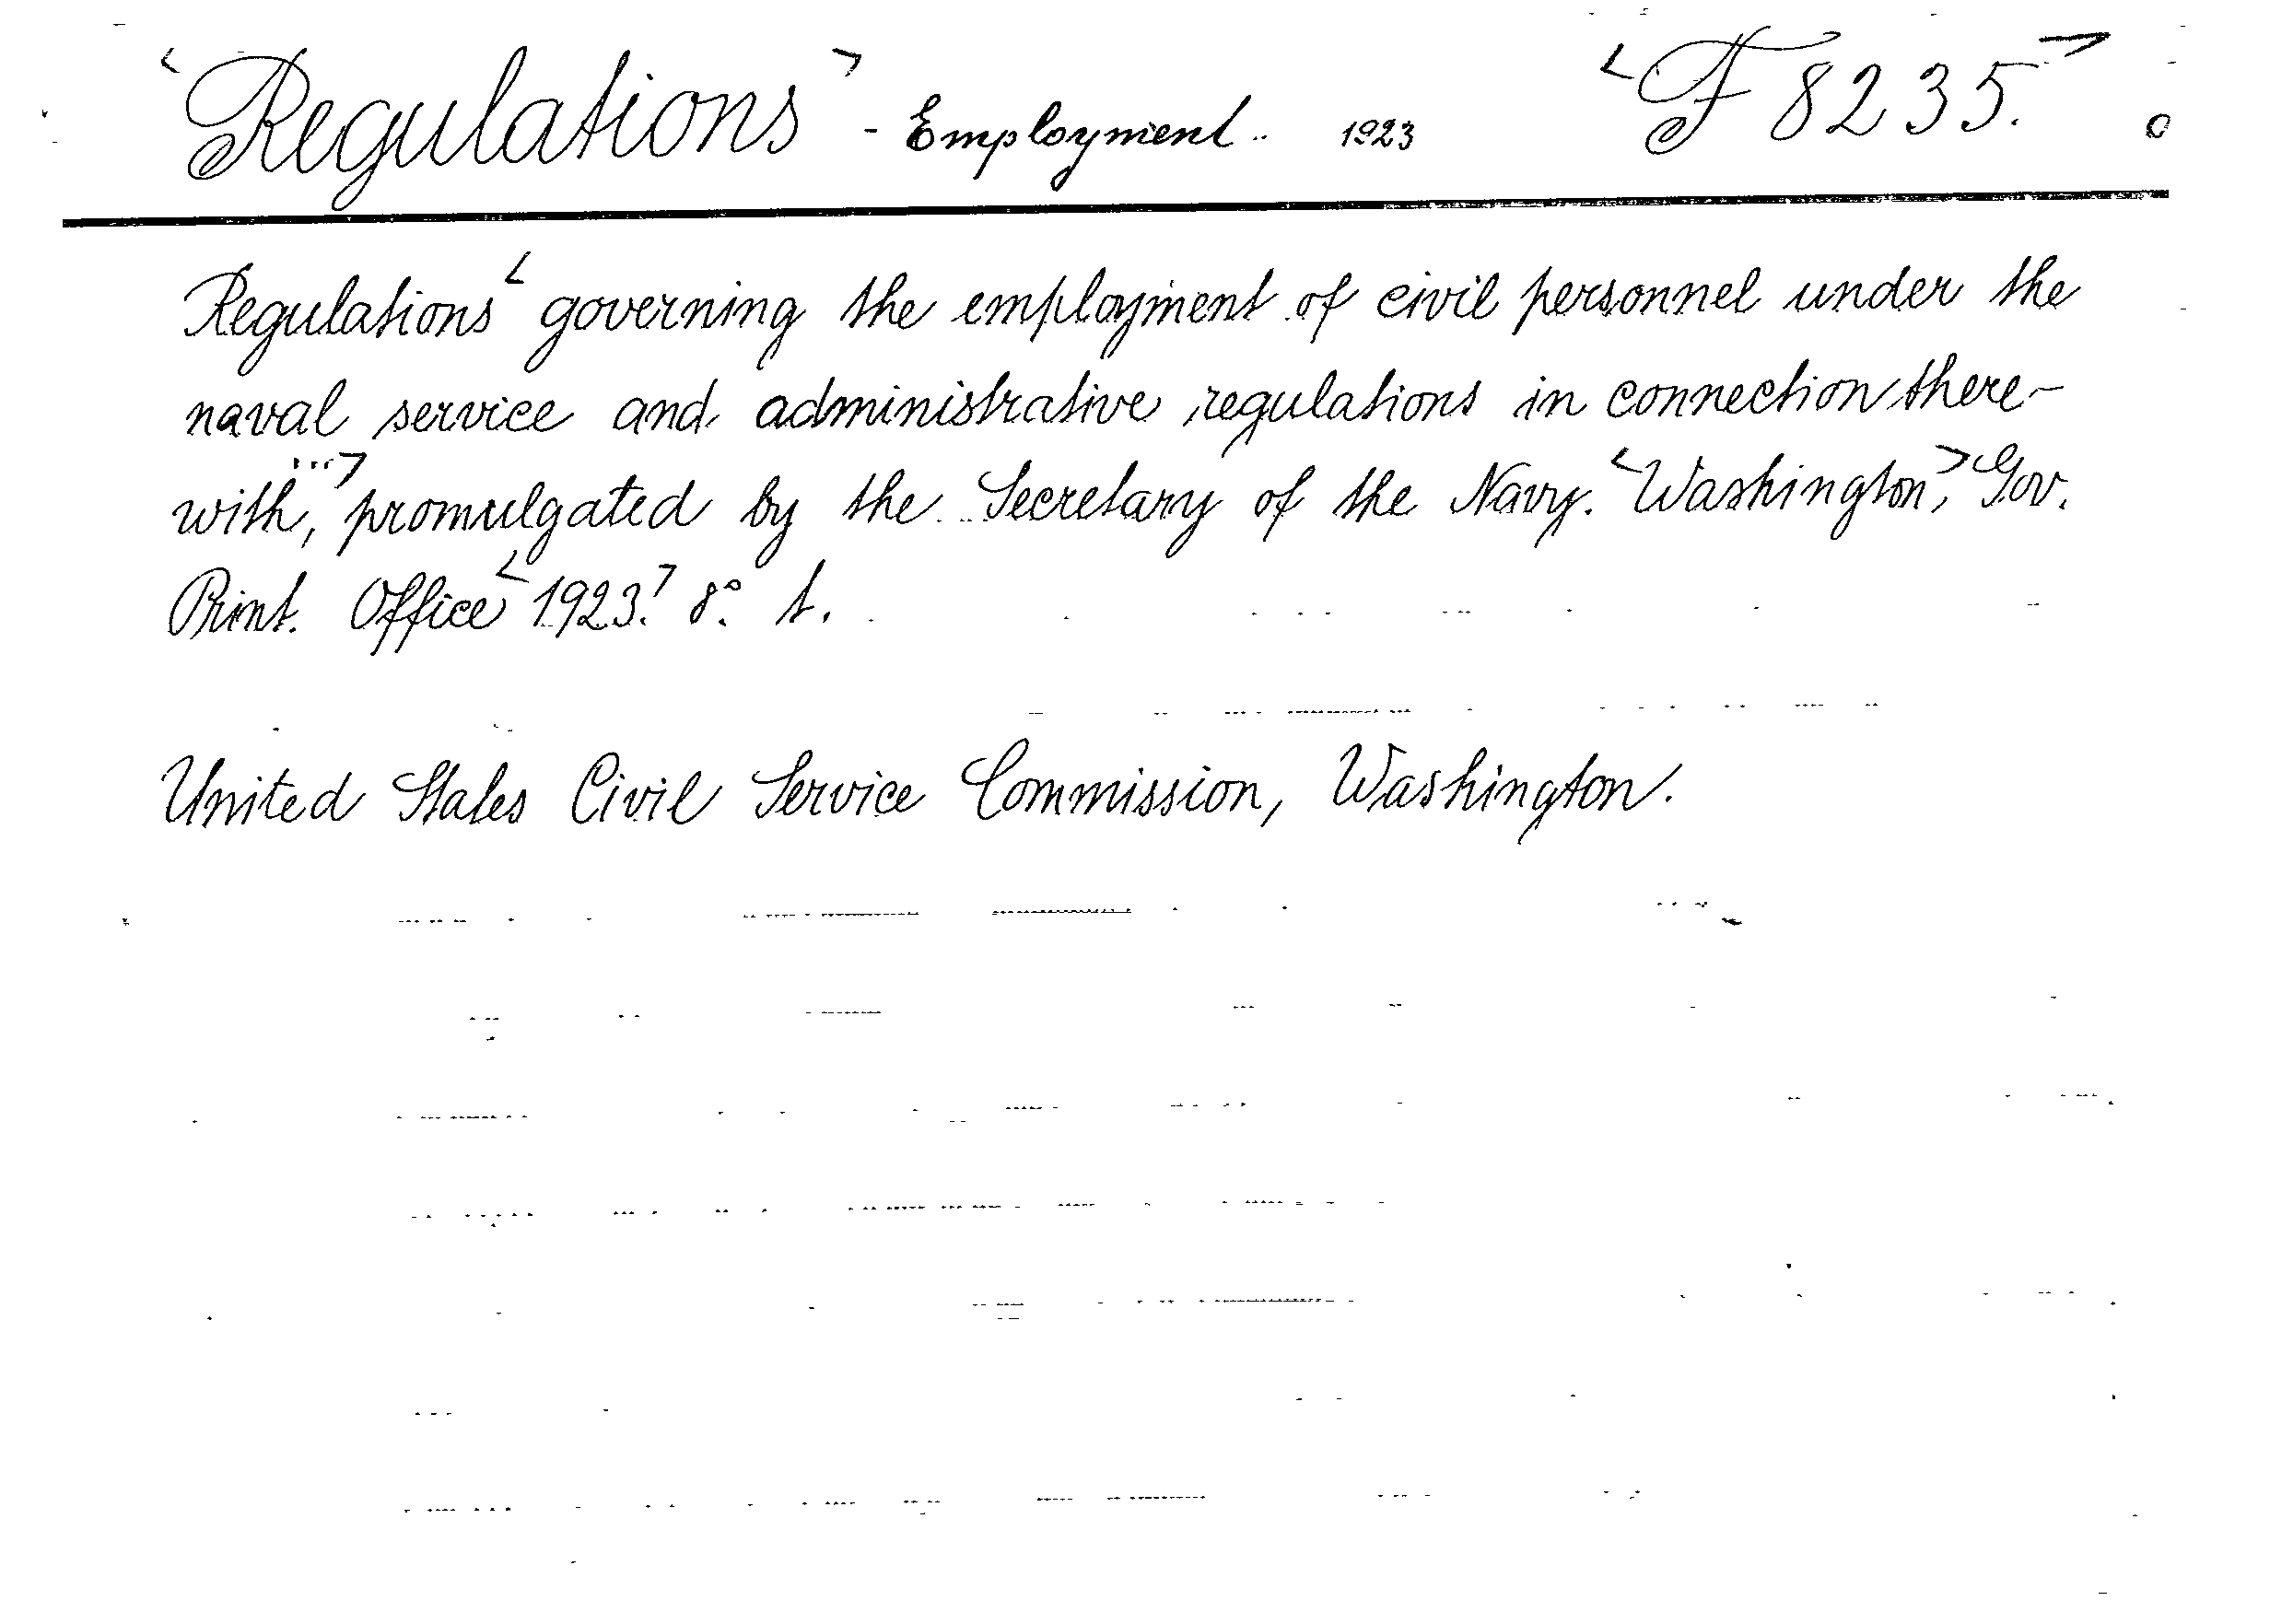 <Regulations> - Employment - 1923 <F 8235.>
Regulations < governing the employment of civil personnel under the
naval service and administrative regulations in connection there-
with, ...> promulgated by the Secretary of the Navy. <Washington,> Gov.
Print. Office <1923.> 8°. t.
United States Civil Service Commission, Washington.